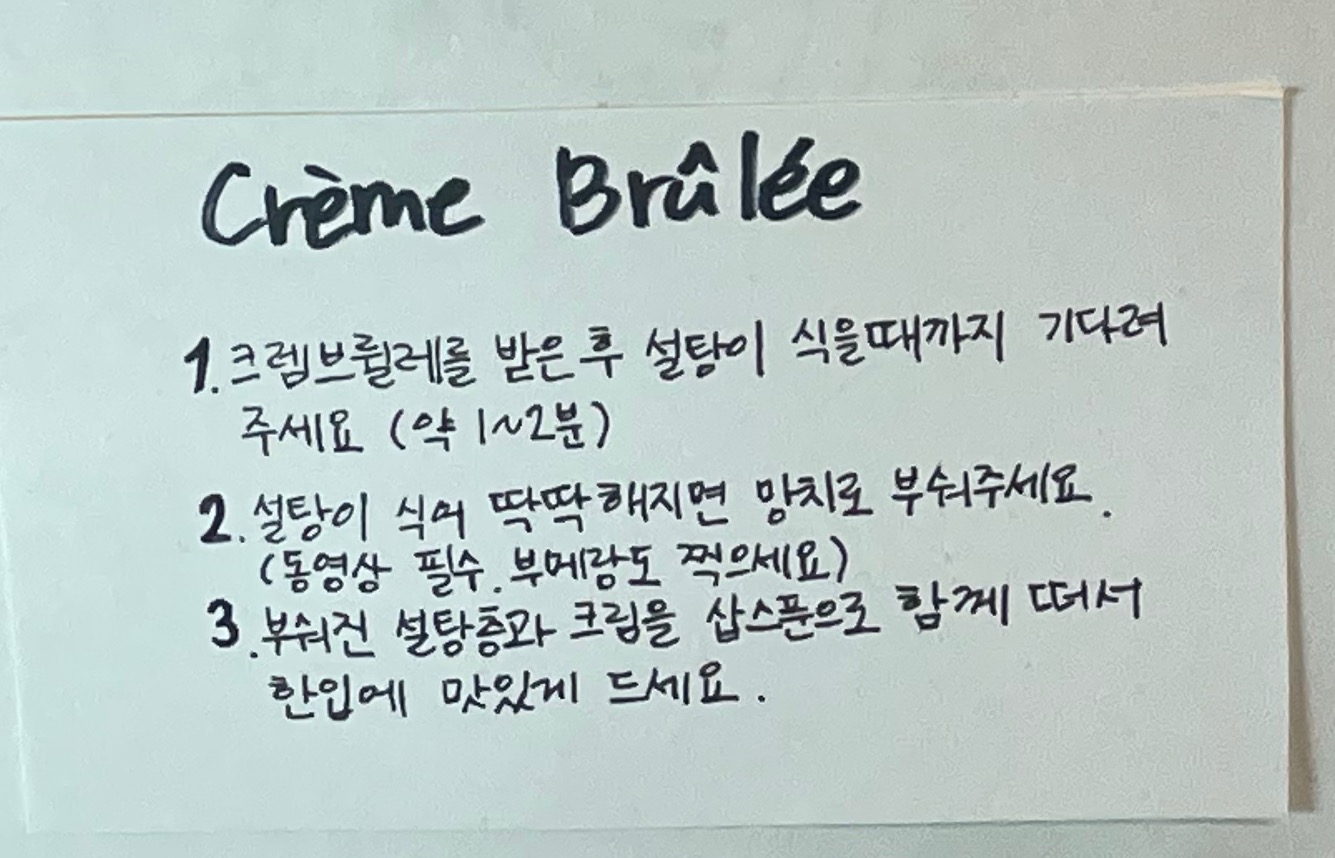 Crème Brûlée
1. 크렘브륄레를 받은 후 설탕이 식을때까지 기다려
주세요 (약 1~2분)
2. 설탕이 식어 딱딱해지면 망치로 부숴주세요.
(동영상 필수. 부메랑도 찍으세요)
3. 부숴진 설탕층과 크림을 삽스푼으로 함께 떠서
한입에 맛있게 드세요.